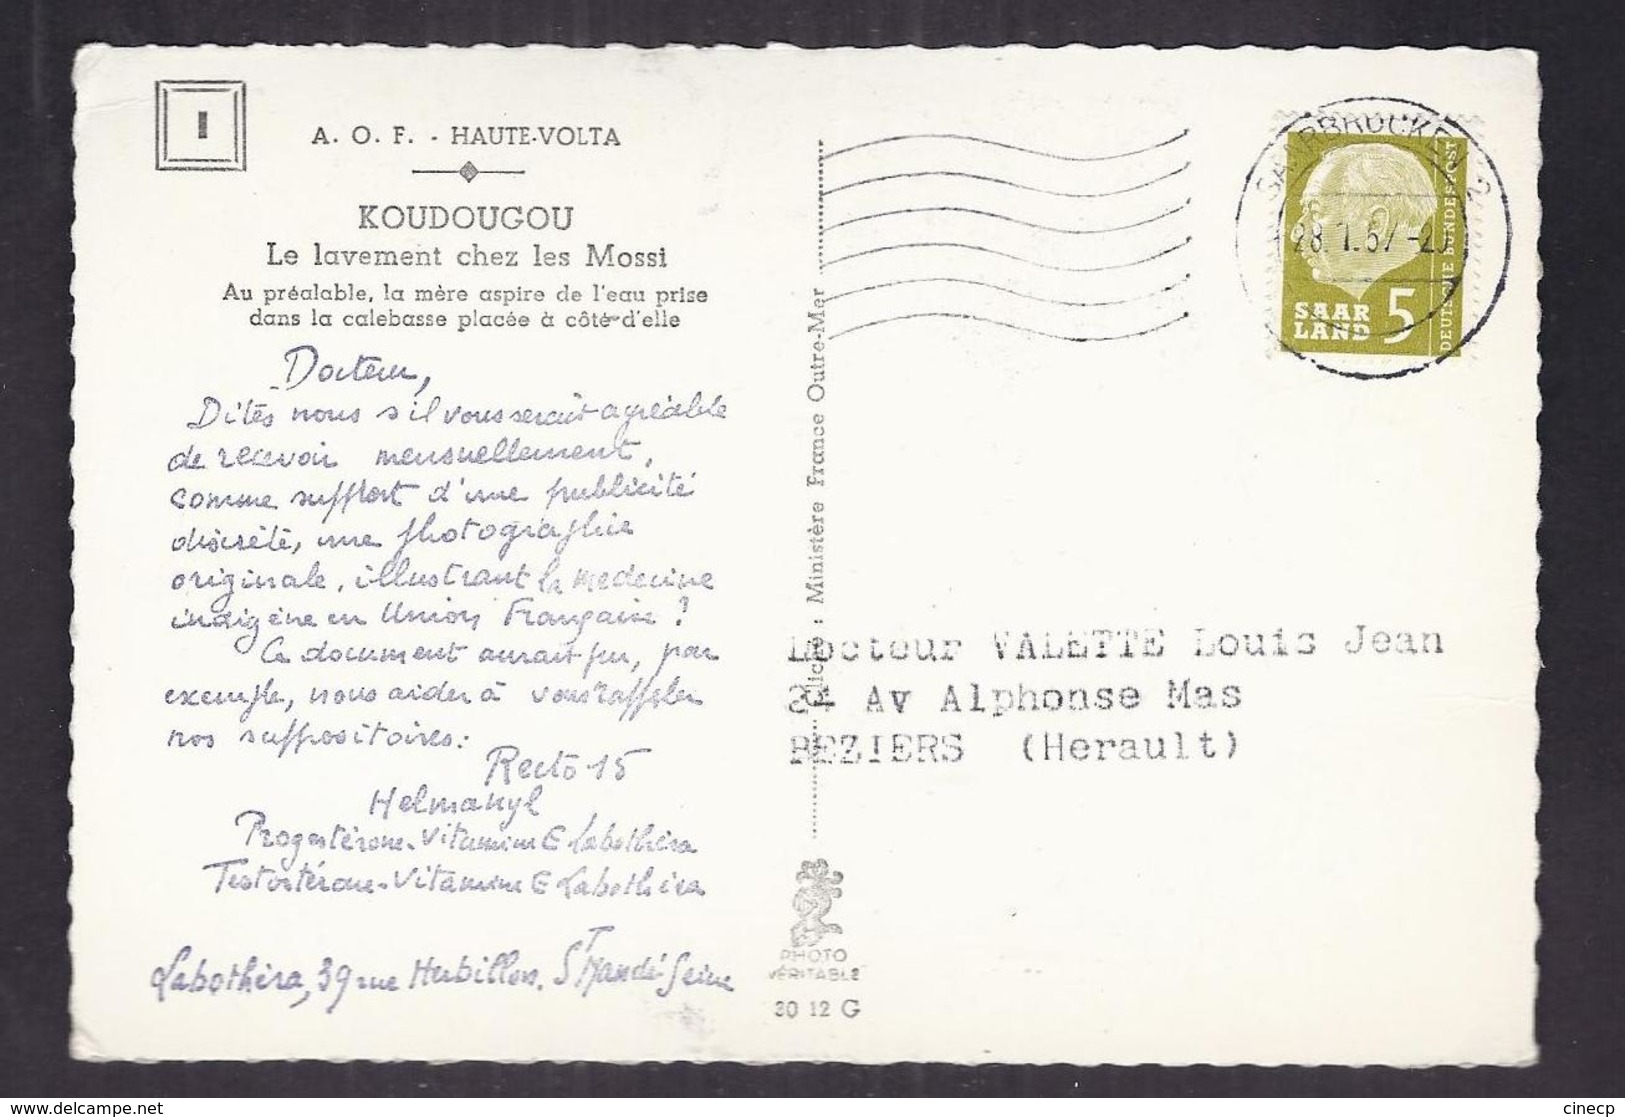 I
A. O. F. - HAUTE-VOLTA
KOUDOUGOU
Le lavement chez les Mossi
Au préalable, la mère aspire de l'eau prise
dans la calebasse placée à côté d'elle
Docteur,
Dites nous s'il vous serait agréable
de recevoir mensuellement,
comme support d'une publicité
discrète, une photographie
originale, illustrant la medecine
indigène en Union Française ?
Ce document aurait pu, par
exemple, nous aider à vous rappeler
nos suppositoires :
Recto 15
Helmanyl
Progestérone-Vitamine E Labothéra
Testostérone-Vitamine E Labothéra
Labothéra, 39 rue Hubillon. St Mandé Seine
Cliché : Ministère France Outre-Mer
PHOTO
VÉRITABLE
30 12 G
SAARBRÜCKEN 2
28.1.57
SAAR
LAND 5
DEUTSCHE BUNDESPOST
Docteur VALETTE Louis Jean
24 Av Alphonse Mas
BEZIERS (Herault)
cinecp